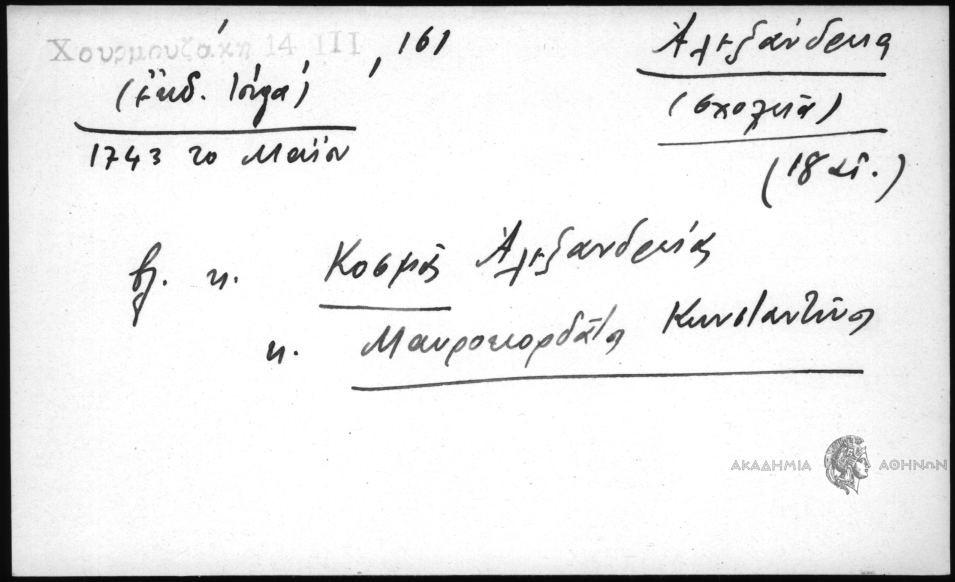 Χουρμουζάκη 14 III, 161
(ἔκδ. Ἰόργα)
1743 το Μαϊου
Ἀλεξάνδρεια
(σχολεῖα)
(18 αἰ.)
βλ. κ. Κοσμᾶς Ἀλεξανδρείας
κ. Μαυροκορδᾶτος Κωνσταντῖνος
ΑΚΑΔΗΜΙΑ ΑΘΗΝΩΝ